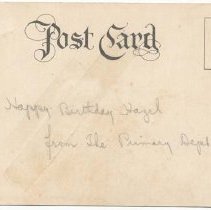 Post Card
Happy Birthday Hazel
from The Primary Dept